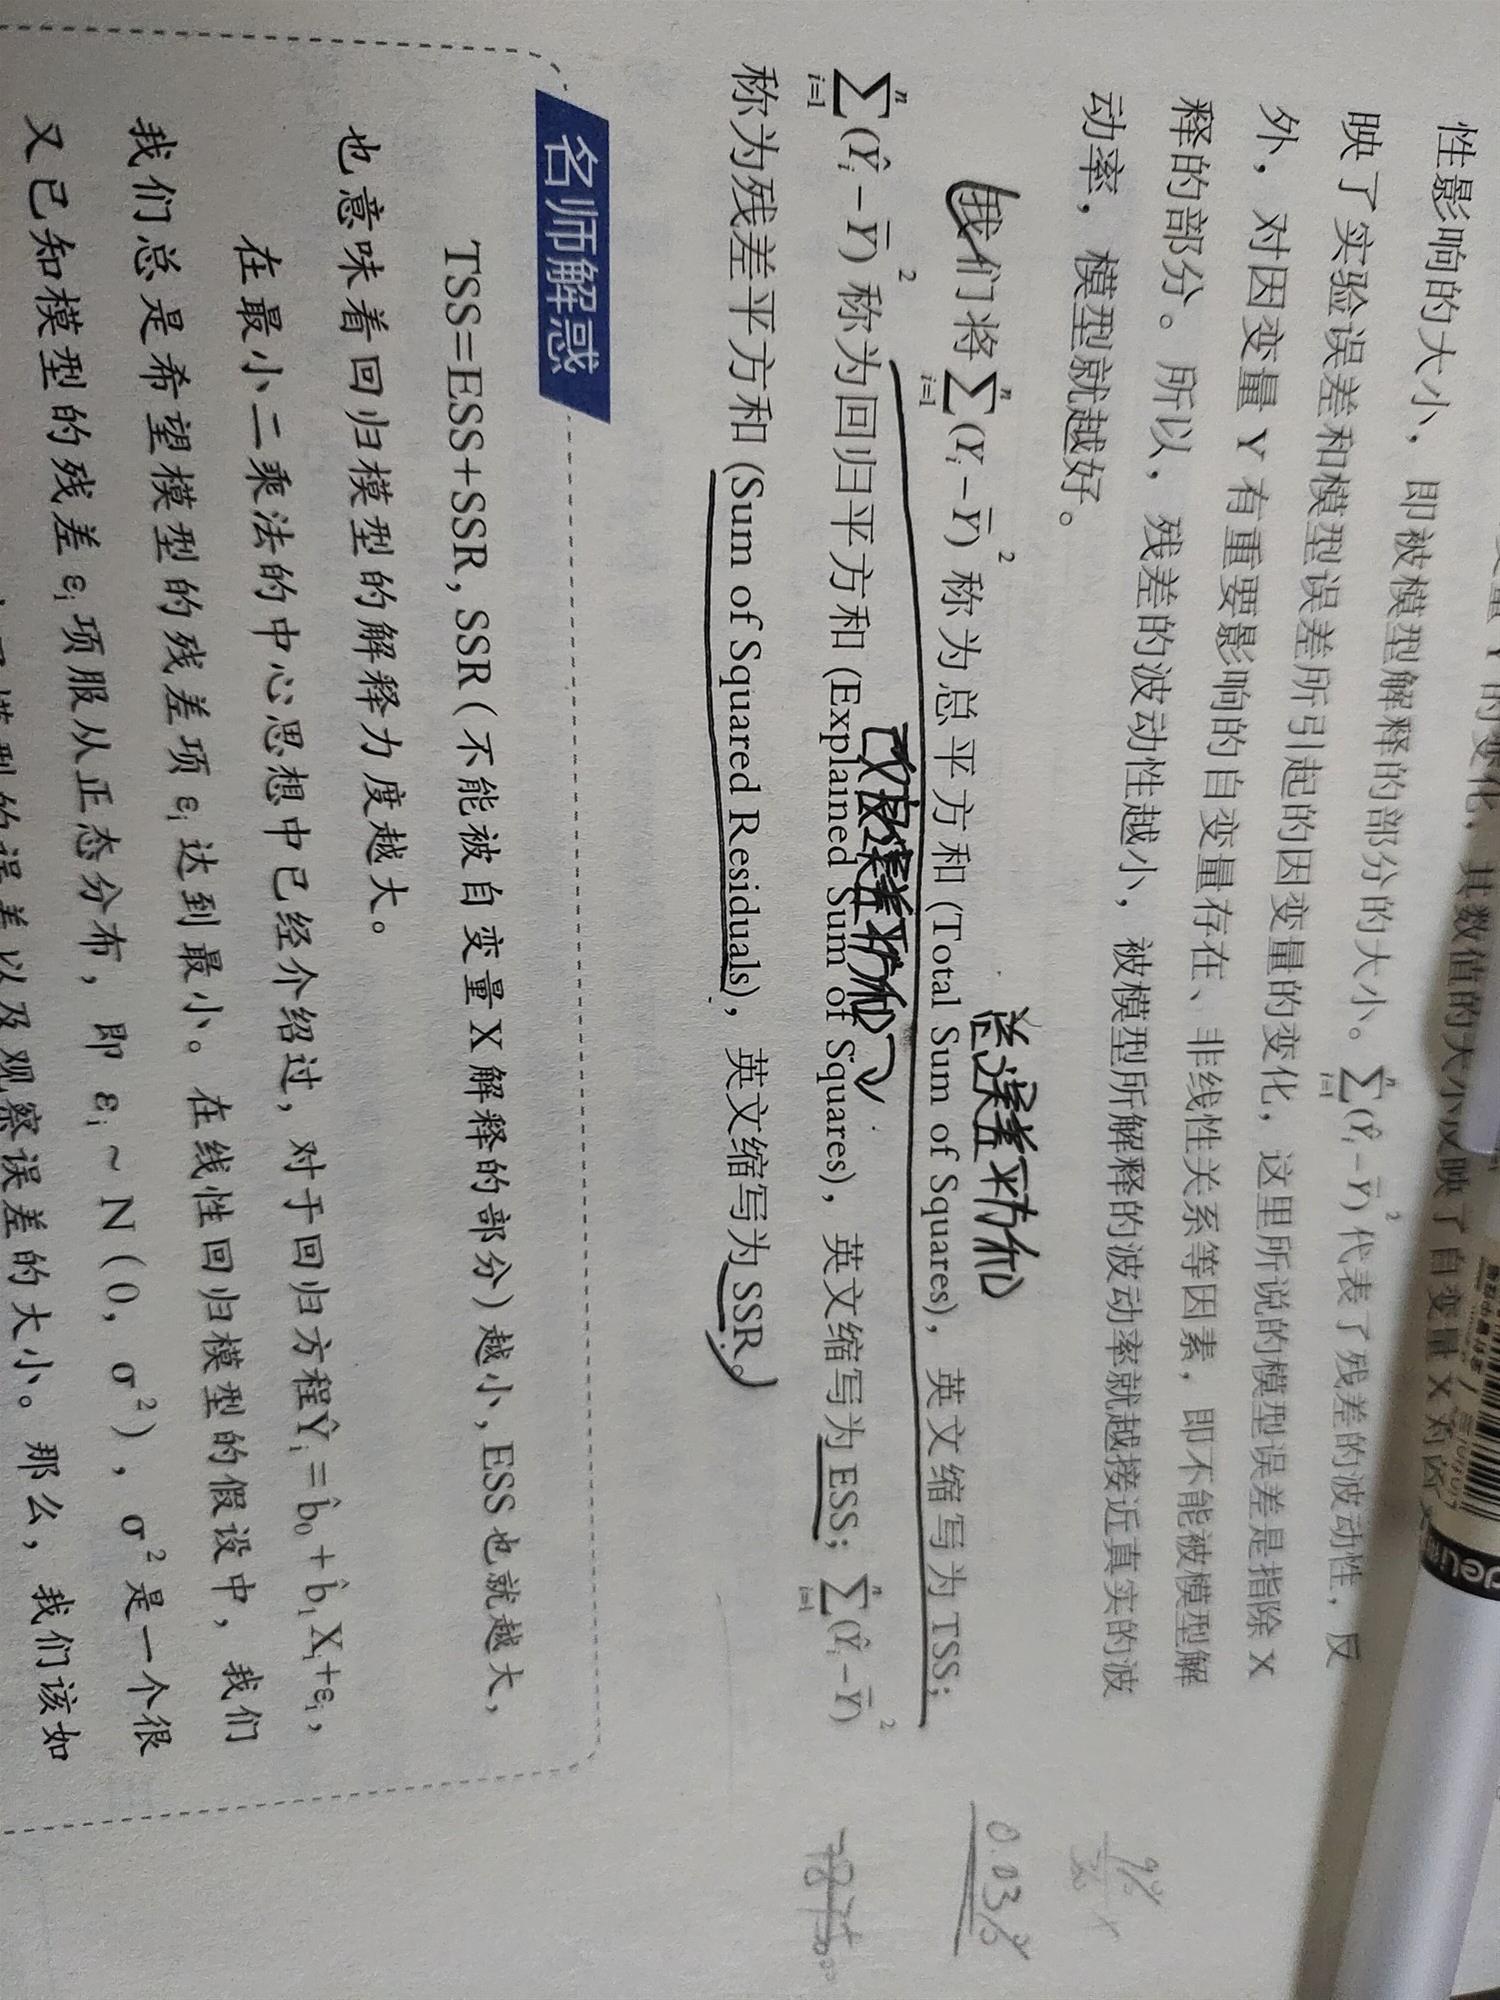 变量 Y 的变化，其数值的大小反映了自变量 X 对因
性影响的大小，即被模型解释的部分的大小。∑(Ŷᵢ−Y̅)²代表了残差的波动性，反
i=1 n
映了实验误差和模型误差所引起的因变量的变化，这里所说的模型误差是指除 X
外，对因变量 Y 有重要影响的自变量存在、非线性关系等因素，即不能被模型解
释的部分。所以，残差的波动性越小，被模型所解释的波动率就越接近真实的波
动率，模型就越好。
总误差平方和
我们将∑(Yᵢ−Y̅)²称为总平方和 (Total Sum of Squares)，英文缩写为 TSS；
i=1 n
∑(Ŷᵢ−Y̅)²称为回归平方和 (Explained Sum of Squares)，英文缩写为 ESS；∑(Ŷᵢ−Y̅)²
i=1 n
称为残差平方和 (Sum of Squared Residuals)，英文缩写为 SSR。
名师解惑
TSS=ESS+SSR, SSR (不能被自变量 X 解释的部分) 越小, ESS 也就越大,
也意味着回归模型的解释力度越大。
在最小二乘法的中心思想中已经介绍过，对于回归方程Ŷᵢ = b̂₀ + b̂₁Xᵢ+εᵢ,
我们总是希望模型的残差项 εᵢ 达到最小。在线性回归模型的假设中，我们
又已知模型的残差 εᵢ 项服从正态分布，即 εᵢ ~ N (0, σ²)，σ² 是一个很
误差以及观察误差的大小。那么，我们该如
0.03%
deli